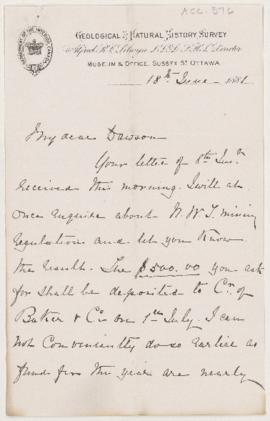 ACC. 576
GEOLOGICAL & NATURAL HISTORY SURVEY
Alfred R. C. Selwyn L.L.D. F.R.S. Director
MUSEUM & OFFICE, SUSSEX ST OTTAWA.
18th June 1881
My dear Dawson
Your letter of 8th Inst
received this morning. I will at
once enquire about N. W. T. mining
regulations and let you know
the result. The $500.00 you ask
for shall be deposited to Cr. of
Baker & Co on 1st July. I can
not conveniently do so earlier as
funds for the year are nearly